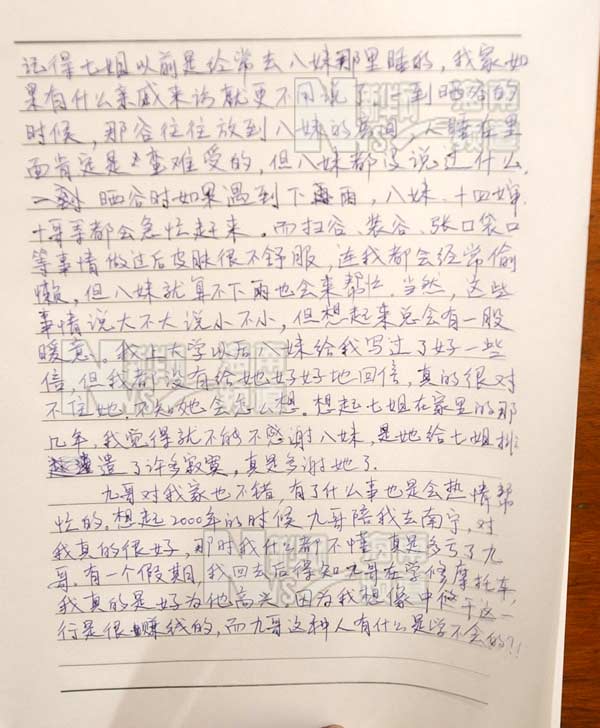 记得七姐以前是经常去八妹那里睡的，我家如
果有什么亲戚来访就更不用说了。一到晒谷的
时候，那谷往往放到八妹的房间，人睡在里
面肯定是蛮难受的，但八妹都没说过什么。
一到晒谷时如果遇到下雨，八妹、十四婶、
十哥等都会急忙赶来。而扫谷、装谷、张口袋口
等事情做过后皮肤很不舒服，连我都会经常偷
懒，但八妹就算不下雨也会来帮忙。当然，这些
事情说大不大说小不小，但想起来总会有一股
暖意。我上大学以后八妹给我写过了好一些
信，但我都没有给她好好地回信，真的很对
不住她，不知她会怎么想。想起七姐在家里的那
几年，我觉得就不能不感谢八妹，是她给七姐排
遣了许多寂寞，真是多谢她了.
九哥对我家也不错，有了什么事也是会热情帮
忙的。想起2000年的时候九哥陪我去南宁，对
我真的很好，那时我什么都不懂，真是多亏了九
哥。有一个假期，我回去后得知九哥在学修摩托车，
我真的是好为他高兴，因为我想像中做于这一
行是很赚钱的，而九哥这种人有什么是学不会的?!